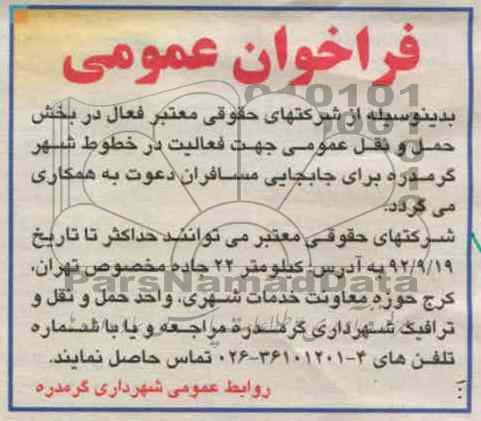 فراخوان عمومی
بدینوسیله از شرکتهای حقوقی معتبر فعال در بخش
حمل و نقل عمومی جهت فعالیت در خطوط شهر
گرمدره برای جابجایی مسافران دعوت به همکاری
می گردد.
شرکتهای حقوقی معتبر می توانند حداکثر تا تاریخ
۹۲/۹/۱۹ به آدرس: کیلومتر ۲۲ جاده مخصوص تهران،
کرج حوزه معاونت خدمات شهری، واحد حمل و نقل و
ترافیک شهرداری گرمدره مراجعه و یا با شماره
تلفن های ۴-۳۶۱۰۱۲۰۱-۰۲۶ تماس حاصل نمایند.
روابط عمومی شهرداری گرمدره
ParsNamadData